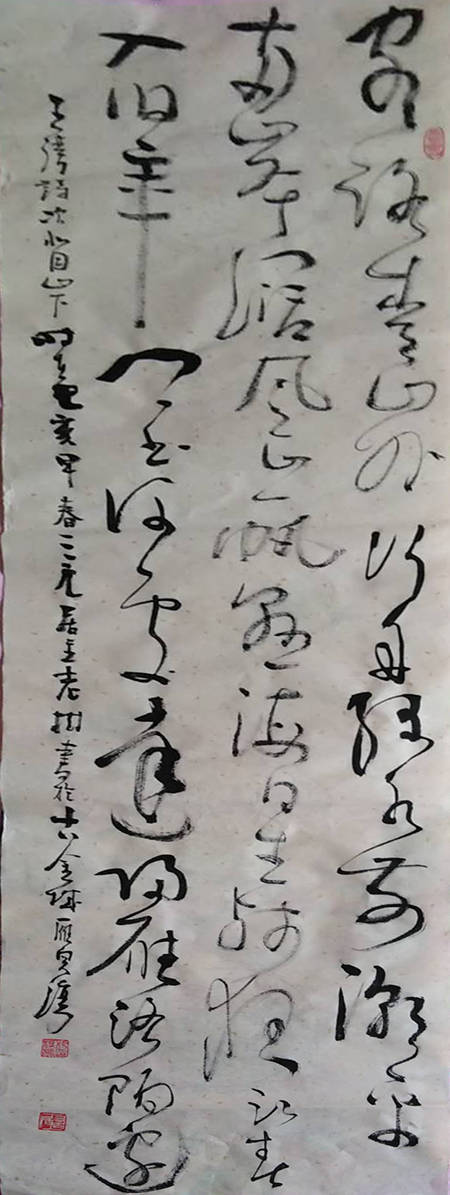 客路青山外行舟绿水前潮平
两岸阔风正一帆悬海日生残夜江春
入旧年乡书何处达归雁洛阳边
王湾诗次北固山下时在己亥春三元居主老树书於金城雁滩